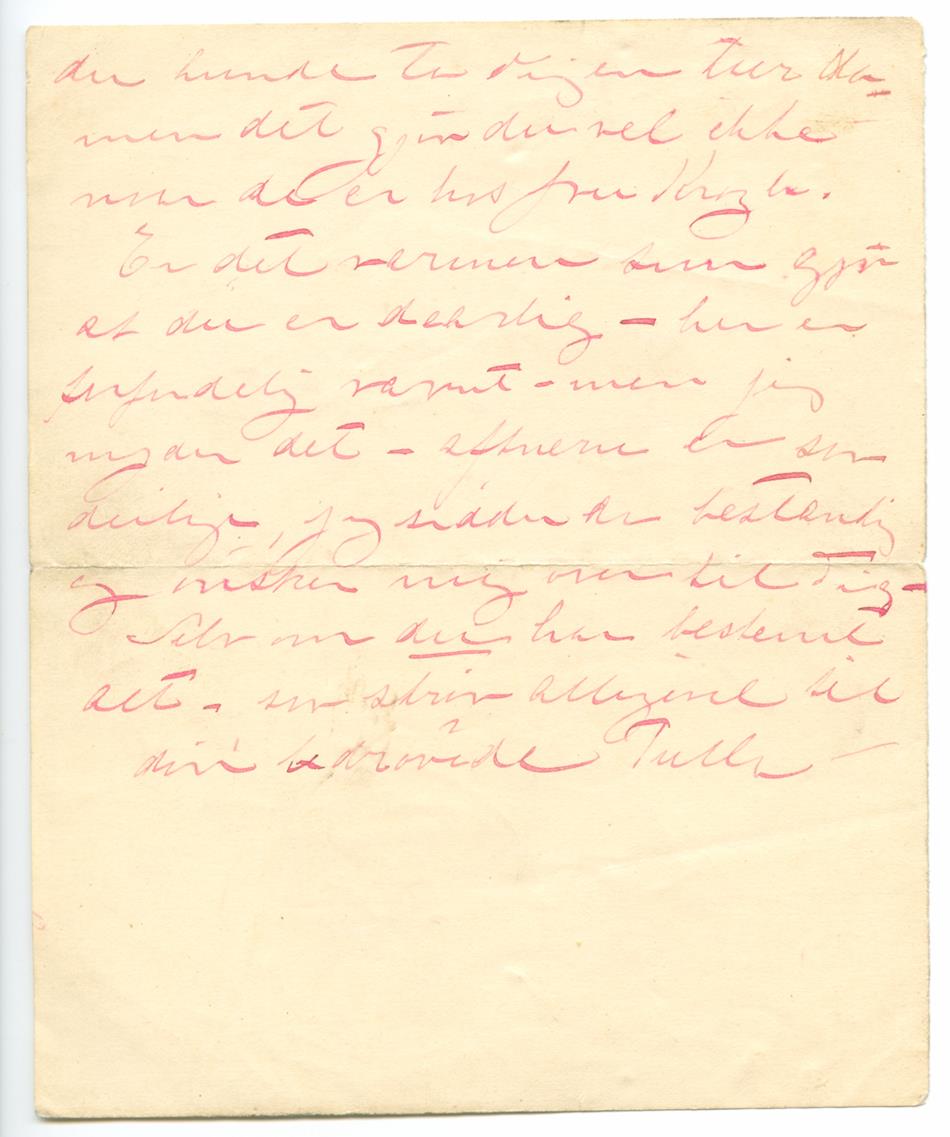 du kunde ta dig en tur
men det gjør du vel ikke
naar de er hos fru Krogh.
Er det varmen som gjør
at du er daarlig – her er
forfærdelig varmt – men jeg
nyder det – aftnene er saa
deilige, jeg sidder der bestandig
og ønsker mig over til dig –
Selv om du har bestemt
det – saa skriv alligevel til
din bedrøvede Tulla –